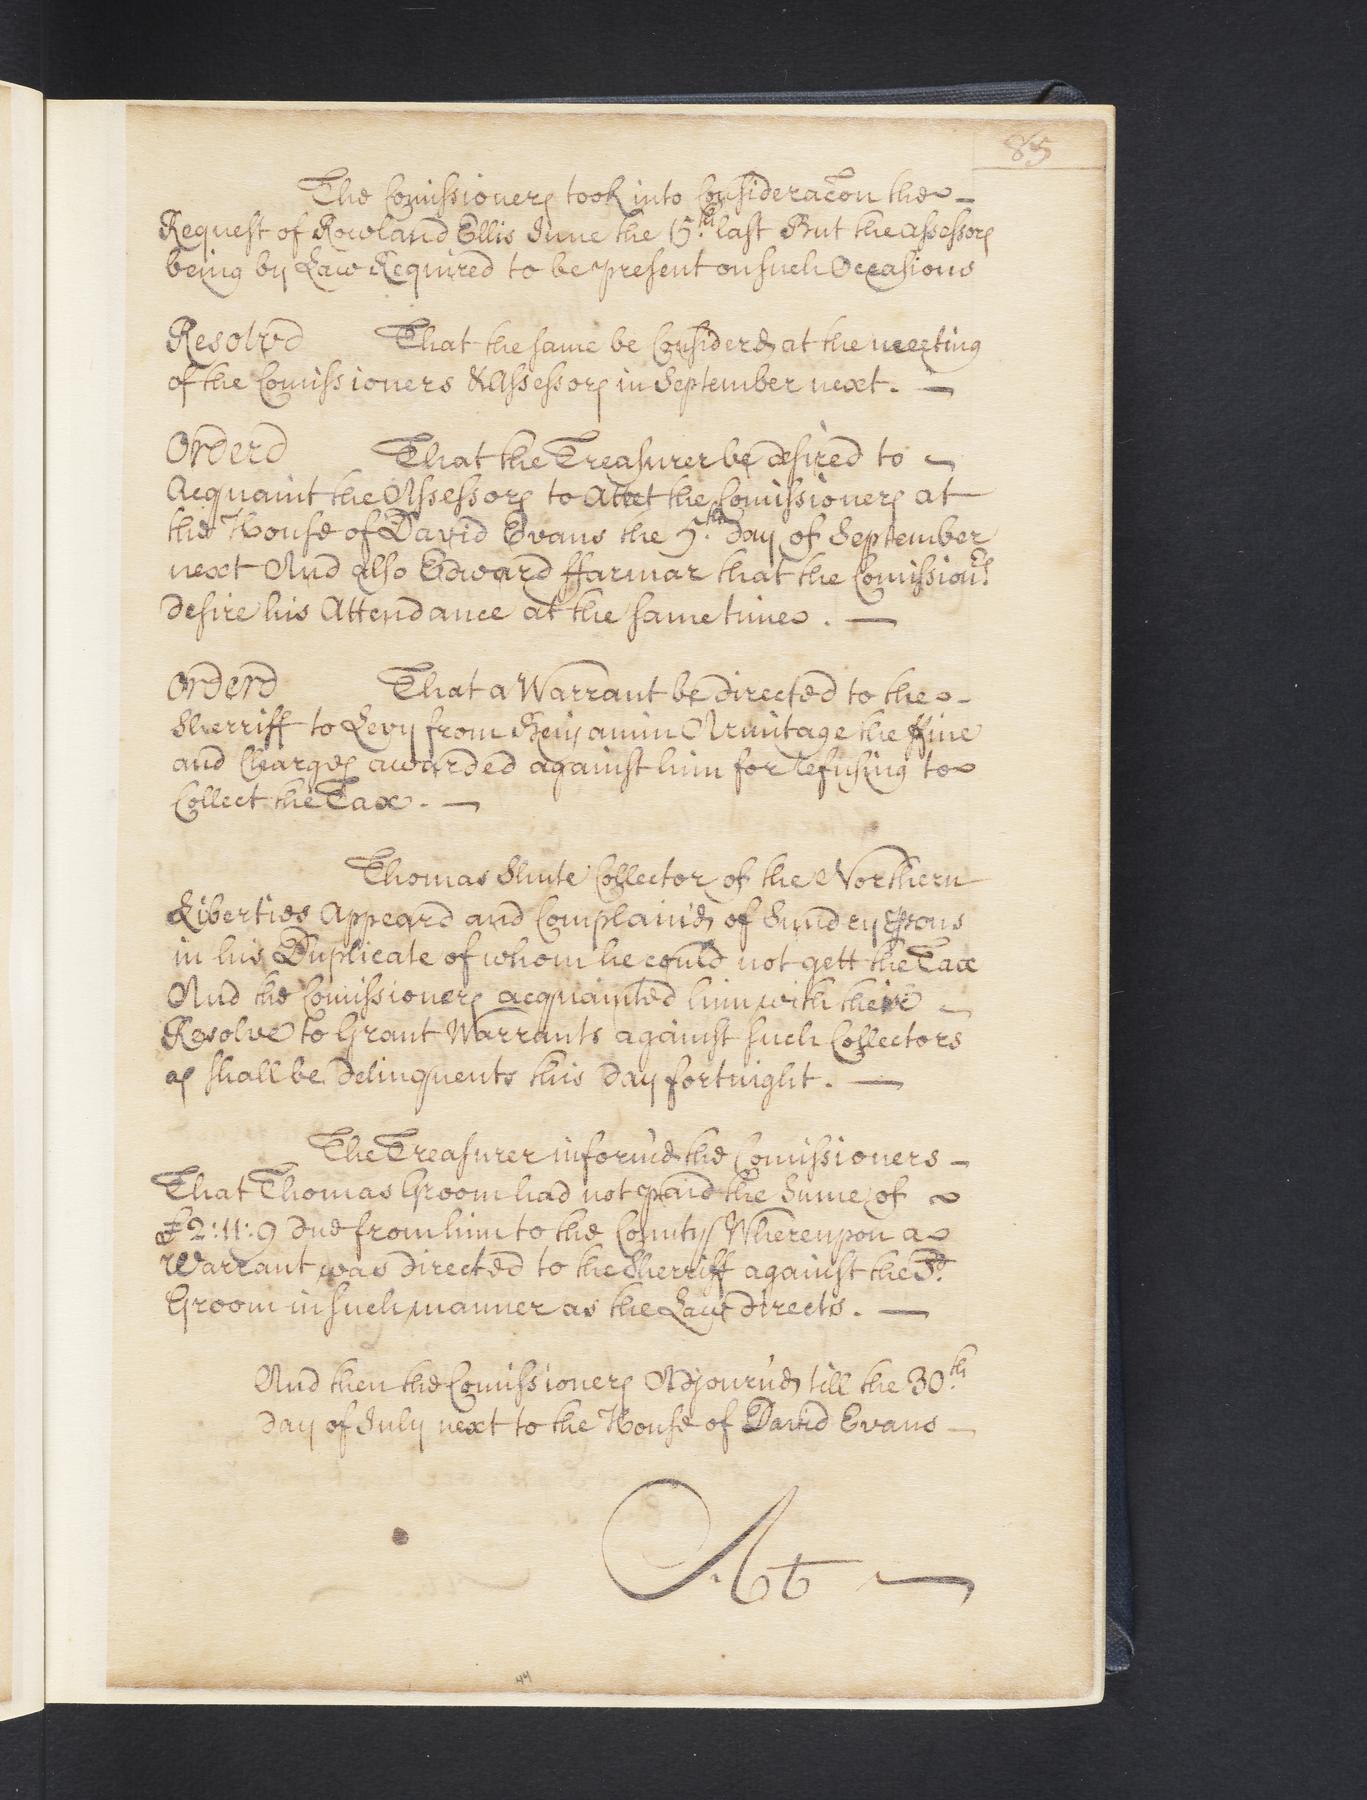 85
The Comissioners took into Consideracon the
Request of Rowland Ellis June the 15th last But the Assessors
being by Law Required to be present on such Occasions
Resolvd That the same be Considerd at the meeting
of the Comissioners & Assessors in September next. —
Orderd That the Treasurer be desired to
Acquaint the Assessors to Meet the Comissioners at
the House of David Evans the 5th day of September
next And also Edward ffarmar that the Comissionrs
desire his Attendance at the same time. —
Orderd That a Warrant be directed to the
Sherriff to Levy from Benjamin Armitage the ffine
and Charges awarded against him for refusing to
Collect the Tax. —
Thomas Shute Collector of the Northern
Liberties Appeard and Complain'd of Sundry psons
in his Duplicate of whom he could not gett the Tax
And the Comissioners acquainted him with their
Resolve to Grant Warrants against such Collectors
as shall be Delinquents this day fortnight. —
The Treasurer inform'd the Comissioners —
That Thomas Groom had not paid the Sume of
£2:11:9 due from him to the County / Whereupon a
Warrant was directed to the Sherriff against the Sd
Groom in such manner as the Law directs. —
And then the Comissioners Adjourn'd till the 30th
day of July next to the House of David Evans —
44